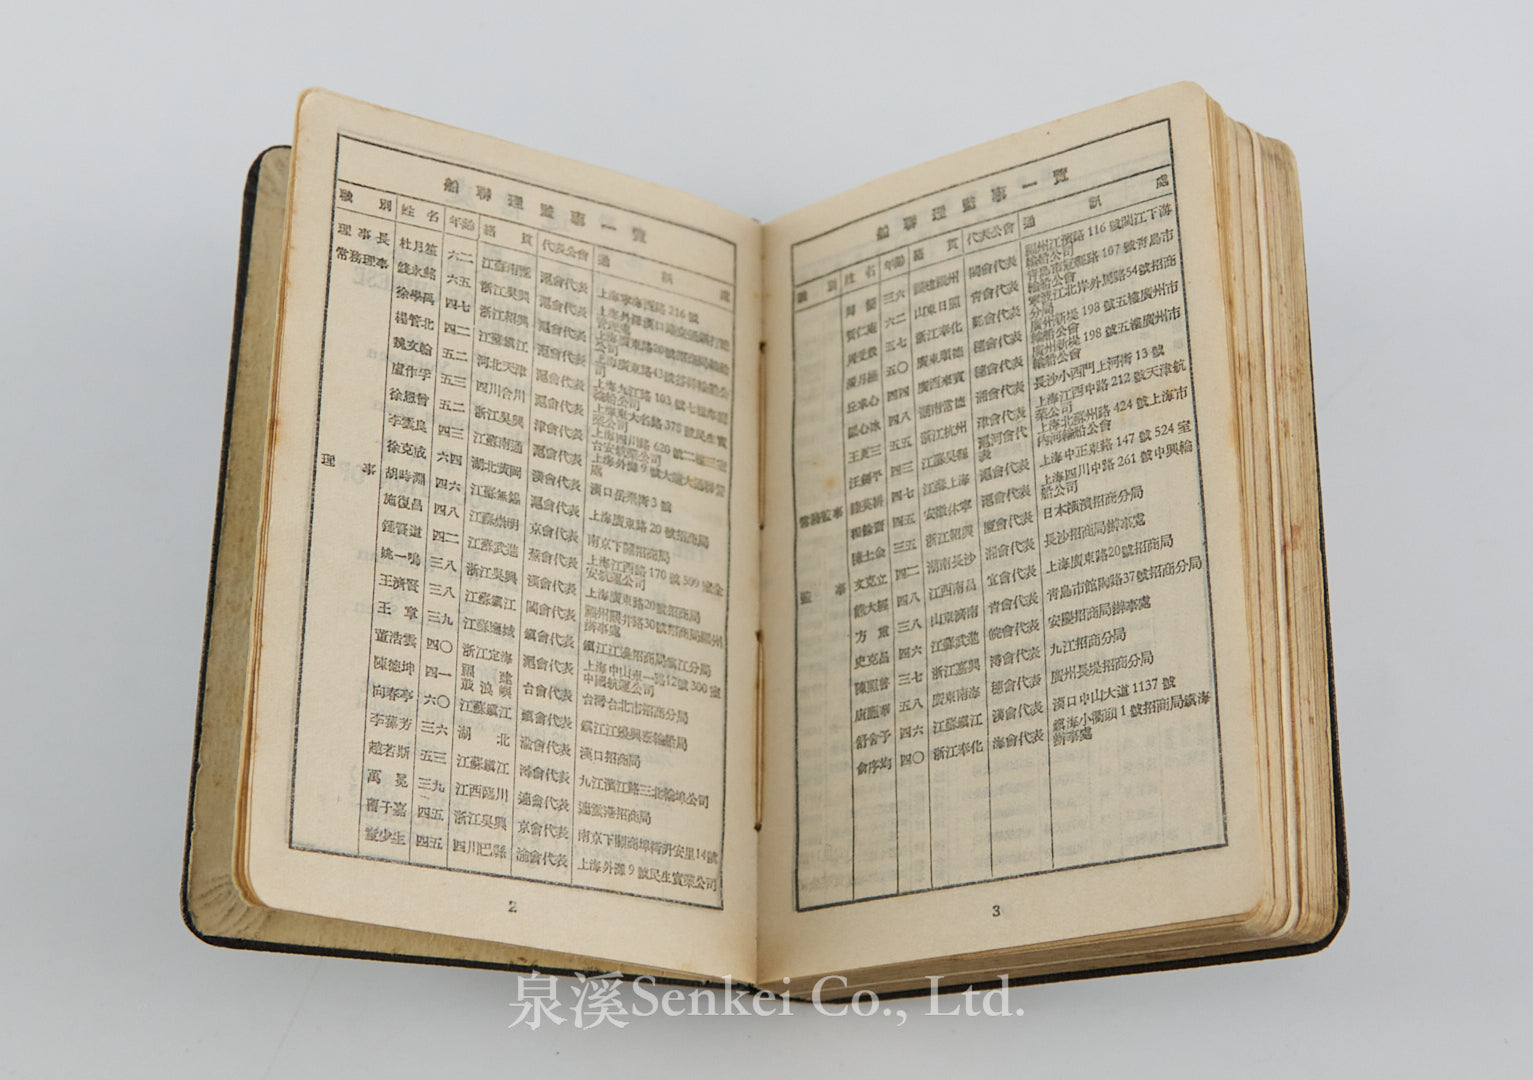 船聯理監事一覽
職別 姓名 年齡 籍貫 代表公會 通訊處
理事長 杜月笙 六二 江蘇南匯 滬會代表 上海寧海西路216號
常務理事 錢永銘 六五 浙江吳興 滬會代表
徐學禹 四七 浙江紹興 滬會代表 上海廣東路20號招商局輪船公司
楊管北 四二 江蘇鎮江 滬會代表 上海廣東路43號
魏文翰 五二 河北天津 滬會代表 上海九江路103號七樓 輪船公司
盧作孚 五三 四川合川 滬會代表 上海東大名路378號民生實業公司
徐恩曾 五二 浙江吳興 津會代表 上海四川路620號二樓 台安航業公司
李雲良 四三 江蘇南通 滬會代表 上海外灘9號
徐克成 六四 湖北黃岡 漢會代表 漢口岳飛街3號
理事 胡時淵 四六 江蘇無錫 滬會代表 上海廣東路20號招商局
施復昌 四八 江蘇崇明 京會代表 南京下關招商局
鍾賢道 四二 江蘇武進 蕪會代表 上海江西路170號509室金安航運公司
姚一鳴 三八 浙江吳興 漢會代表 上海廣東路20號招商局
王濟賢 三八 江蘇鎮江 閩會代表 福州 30號招商局福州辦事處
王 三九 江蘇鹽城 鎮會代表 鎮江江邊招商局鎮江分局
董浩雲 四〇 浙江定海 滬會代表 上海中山東一路12號300室中國航運公司
陳德坤 四一 福建鼓浪嶼 台會代表 台灣台北市招商分局
向春亭 六〇 江蘇鎮江 鎮會代表 鎮江江邊興泰輪船局
李藻芳 三六 湖北 渝會代表 漢口招商局
趙若斯 五三 江蘇鎮江 潯會代表 九江濱江路三北輪埠公司
萬冕 三九 江西臨川 連會代表 連雲港招商局
子嘉 四五 浙江吳興 京會代表 南京下關商埠街升安里14號
童少生 四五 四川巴縣 渝會代表 上海外灘9號民生實業公司
2
船聯理監事一覽
職別 姓名 年齡 籍貫 代表公會 通訊處
周 三六 福建福州 閩會代表 福州江濱路116號閩江下游輪船公司
賀仁菴 六二 山東日照 青會代表 青島市冠縣路107號青島市輪船公會
周受 五七 浙江奉化 鄞會代表 寧波江北岸外馬路54號招商分局
五〇 廣東順德 穗會代表 廣州新堤198號五樓廣州市輪船公會
丘 心 四四 廣西來賓 穗會代表 廣州新堤198號五樓廣州市輪船公會
心冰 四八 湖南常德 湘會代表 長沙小西門上河街13號
王更三 五五 浙江杭州 津會代表 上海江西中路212號天津航業公司
汪劍平 四三 江蘇吳縣 滬河會代表 上海北蘇州路424號上海市內河輪船公會
常務監事 陸英耕 四七 江蘇上海 滬會代表 上海中正東路147號524室
程餘齋 四五 安徽休寧 滬會代表 上海四川中路261號中興輪船公司
陳士金 三五 浙江紹興 廈會代表 日本橫濱招商分局
文克立 四二 湖南長沙 湘會代表 長沙招商局辦事處
監事 大經 四八 江西南昌 宜會代表 上海廣東路20號招商局
方重 三八 山東濟南 青會代表 青島市館陶路37號招商分局
史克昌 四六 江蘇武進 皖會代表 安慶招商局辦事處
陳照普 三七 浙江嘉興 潯會代表 九江招商分局
唐應華 五八 廣東南海 穗會代表 廣州長堤招商分局
舒舍予 四六 江蘇鎮江 漢會代表 漢口中山大道1137號
俞序均 四〇 浙江奉化 海會代表 鎮海小衢頭1號招商局鎮海辦事處
3
泉溪Senkei Co., Ltd.